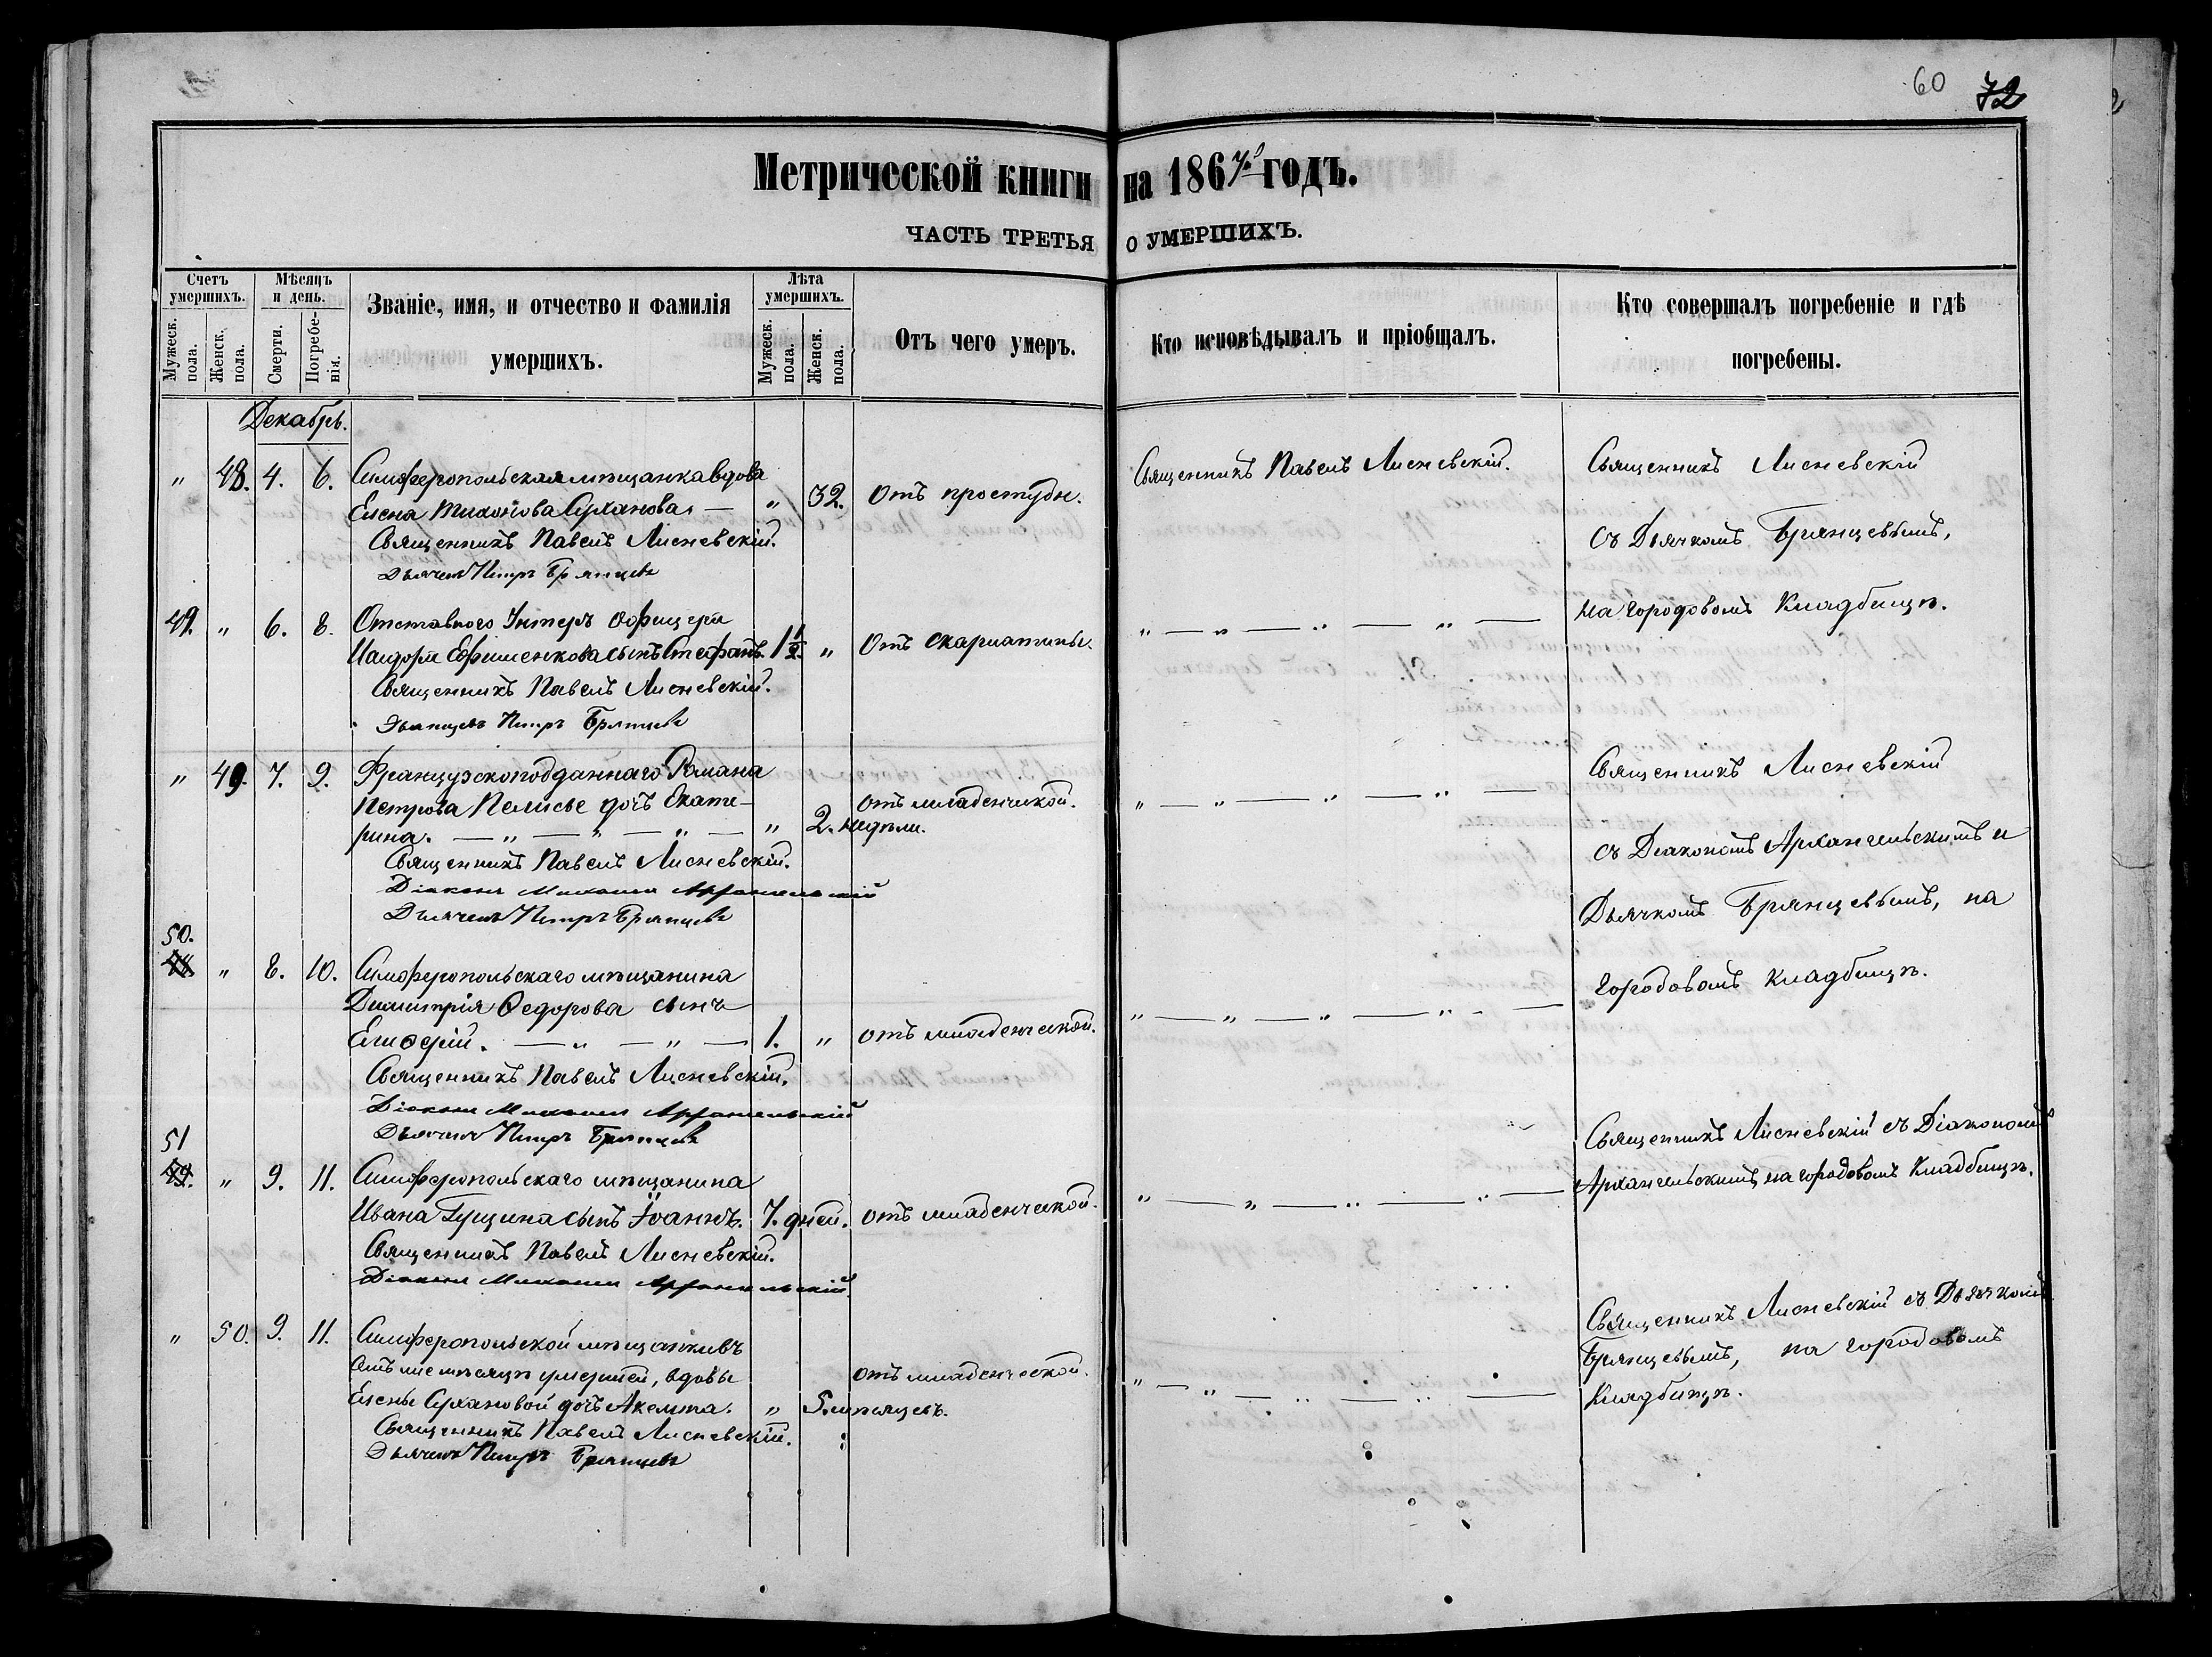 60 72
Метрической книги на 1867й годъ.
ЧАСТЬ ТРЕТЬЯ О УМЕРШИХЪ.
Счетъ умершихъ.
Мужеск. пола.
Женск. пола.
Мѣсяцъ и день.
Смерти.
Погребенія.
Званіе, имя, и отчество и фамилія
умершихъ.
Лѣта умершихъ.
Мужеск. пола.
Женск. пола.
Отъ чего умеръ.
Кто исповѣдывалъ и пріобщалъ.
Кто совершалъ погребеніе и гдѣ
погребены.
Декабрь.
„ 48. 4. 6. Симферопольская мѣщанка вдова
Елена Тихонова Суханова. — „ 32. Отъ простуды.
Священникъ Павелъ Лисневскій.
Дьячекъ Петръ Брянцевъ
Священникъ Павелъ Лисневскій.
Священникъ Лисневскій
съ Дьячкомъ Брянцевымъ,
на городовомъ Кладбищѣ.
49. „ 6. 8. Отставного Унтеръ Офицера
Исидора Ефименкова сынъ Стефанъ. 1½. „ Отъ скарлатины.
Священникъ Павелъ Лисневскій.
Петръ Брянцевъ
„ — „ — „ — „ —
„ 49. 7. 9. Французскоподданнаго Романа
Петрова Пелисье дочь Екате-
рина. — „ — „ — „ — „ 2. недѣли. отъ младенческой.
Священникъ Павелъ Лисневскій.
Діаконъ Михаилъ Архангельскій
Дьячекъ Петръ Брянцевъ
„ — „ — „ — „ —
Священникъ Лисневскій
съ Діакономъ Архангельскимъ и
Дьячкомъ Брянцевымъ, на
городовомъ кладбищѣ.
50.
48 „ 8. 10. Симферопольскаго мѣщанина
Димитрія Ѳедорова сынъ
Елиѳерій. — „ — „ — 1. „ отъ младенческой.
Священникъ Павелъ Лисневскій.
Діаконъ Михаилъ Архангельскій
Дьячекъ Петръ Брянцевъ
„ — „ — „ — „ —
51
49. „ 9. 11. Симферопольскаго мѣщанина
Ивана Гущина сынъ Іоаннъ. 7. дней. отъ младенческой.
Священникъ Павелъ Лисневскій.
Діаконъ Михаилъ Архангельскій
„ — „ — „ — „ —
Священникъ Лисневскій съ Діакономъ
Архангельскимъ, на городовомъ Кладбищѣ.
„ 50. 9. 11. Симферопольской мѣщанки въ
умершей, вдовы
Елены Сухановой дочь „ 5. мѣсяцевъ. отъ младенческой.
Священникъ Павелъ Лисневскій.
Дьячекъ Петръ Брянцевъ
„ — „ — „ — „ —
Священникъ Лисневскій съ Дьячкомъ
Брянцевымъ, на городовомъ
Кладбищѣ.